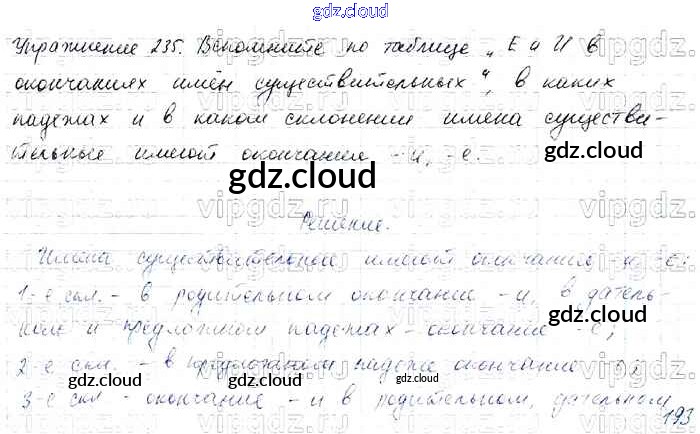 gdz.cloud
Упражнение 235. Вспомните по таблице „Е и И в
окончаниях имён существительных“, в каких
падежах и в каком склонении имена существи-
тельные имеют окончания -и, -е.
gdz.cloud
gdz.cloud
Решение.
Имена существительное имеют окончание -и -е:
1-е скл. - в родительном окончание -и, в датель-
ном и предложном падежах - окончание -е;
gdz.cloud
2-е скл. - в предложном падеже окончание
gdz.cloud
gdz.cloud
3-е скл - окончание -и в родительном, дательном
193